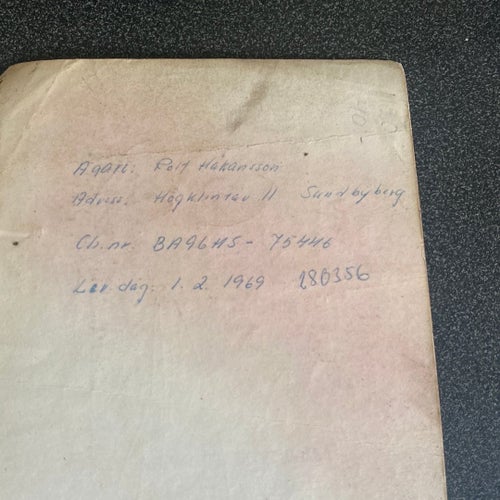 Ägare: Rolf Håkansson
Adress: Högklintav 11 Sundbyberg
Ch.nr. BA96HS - 75446
Lev. dag: 1. 2. 1969 180356